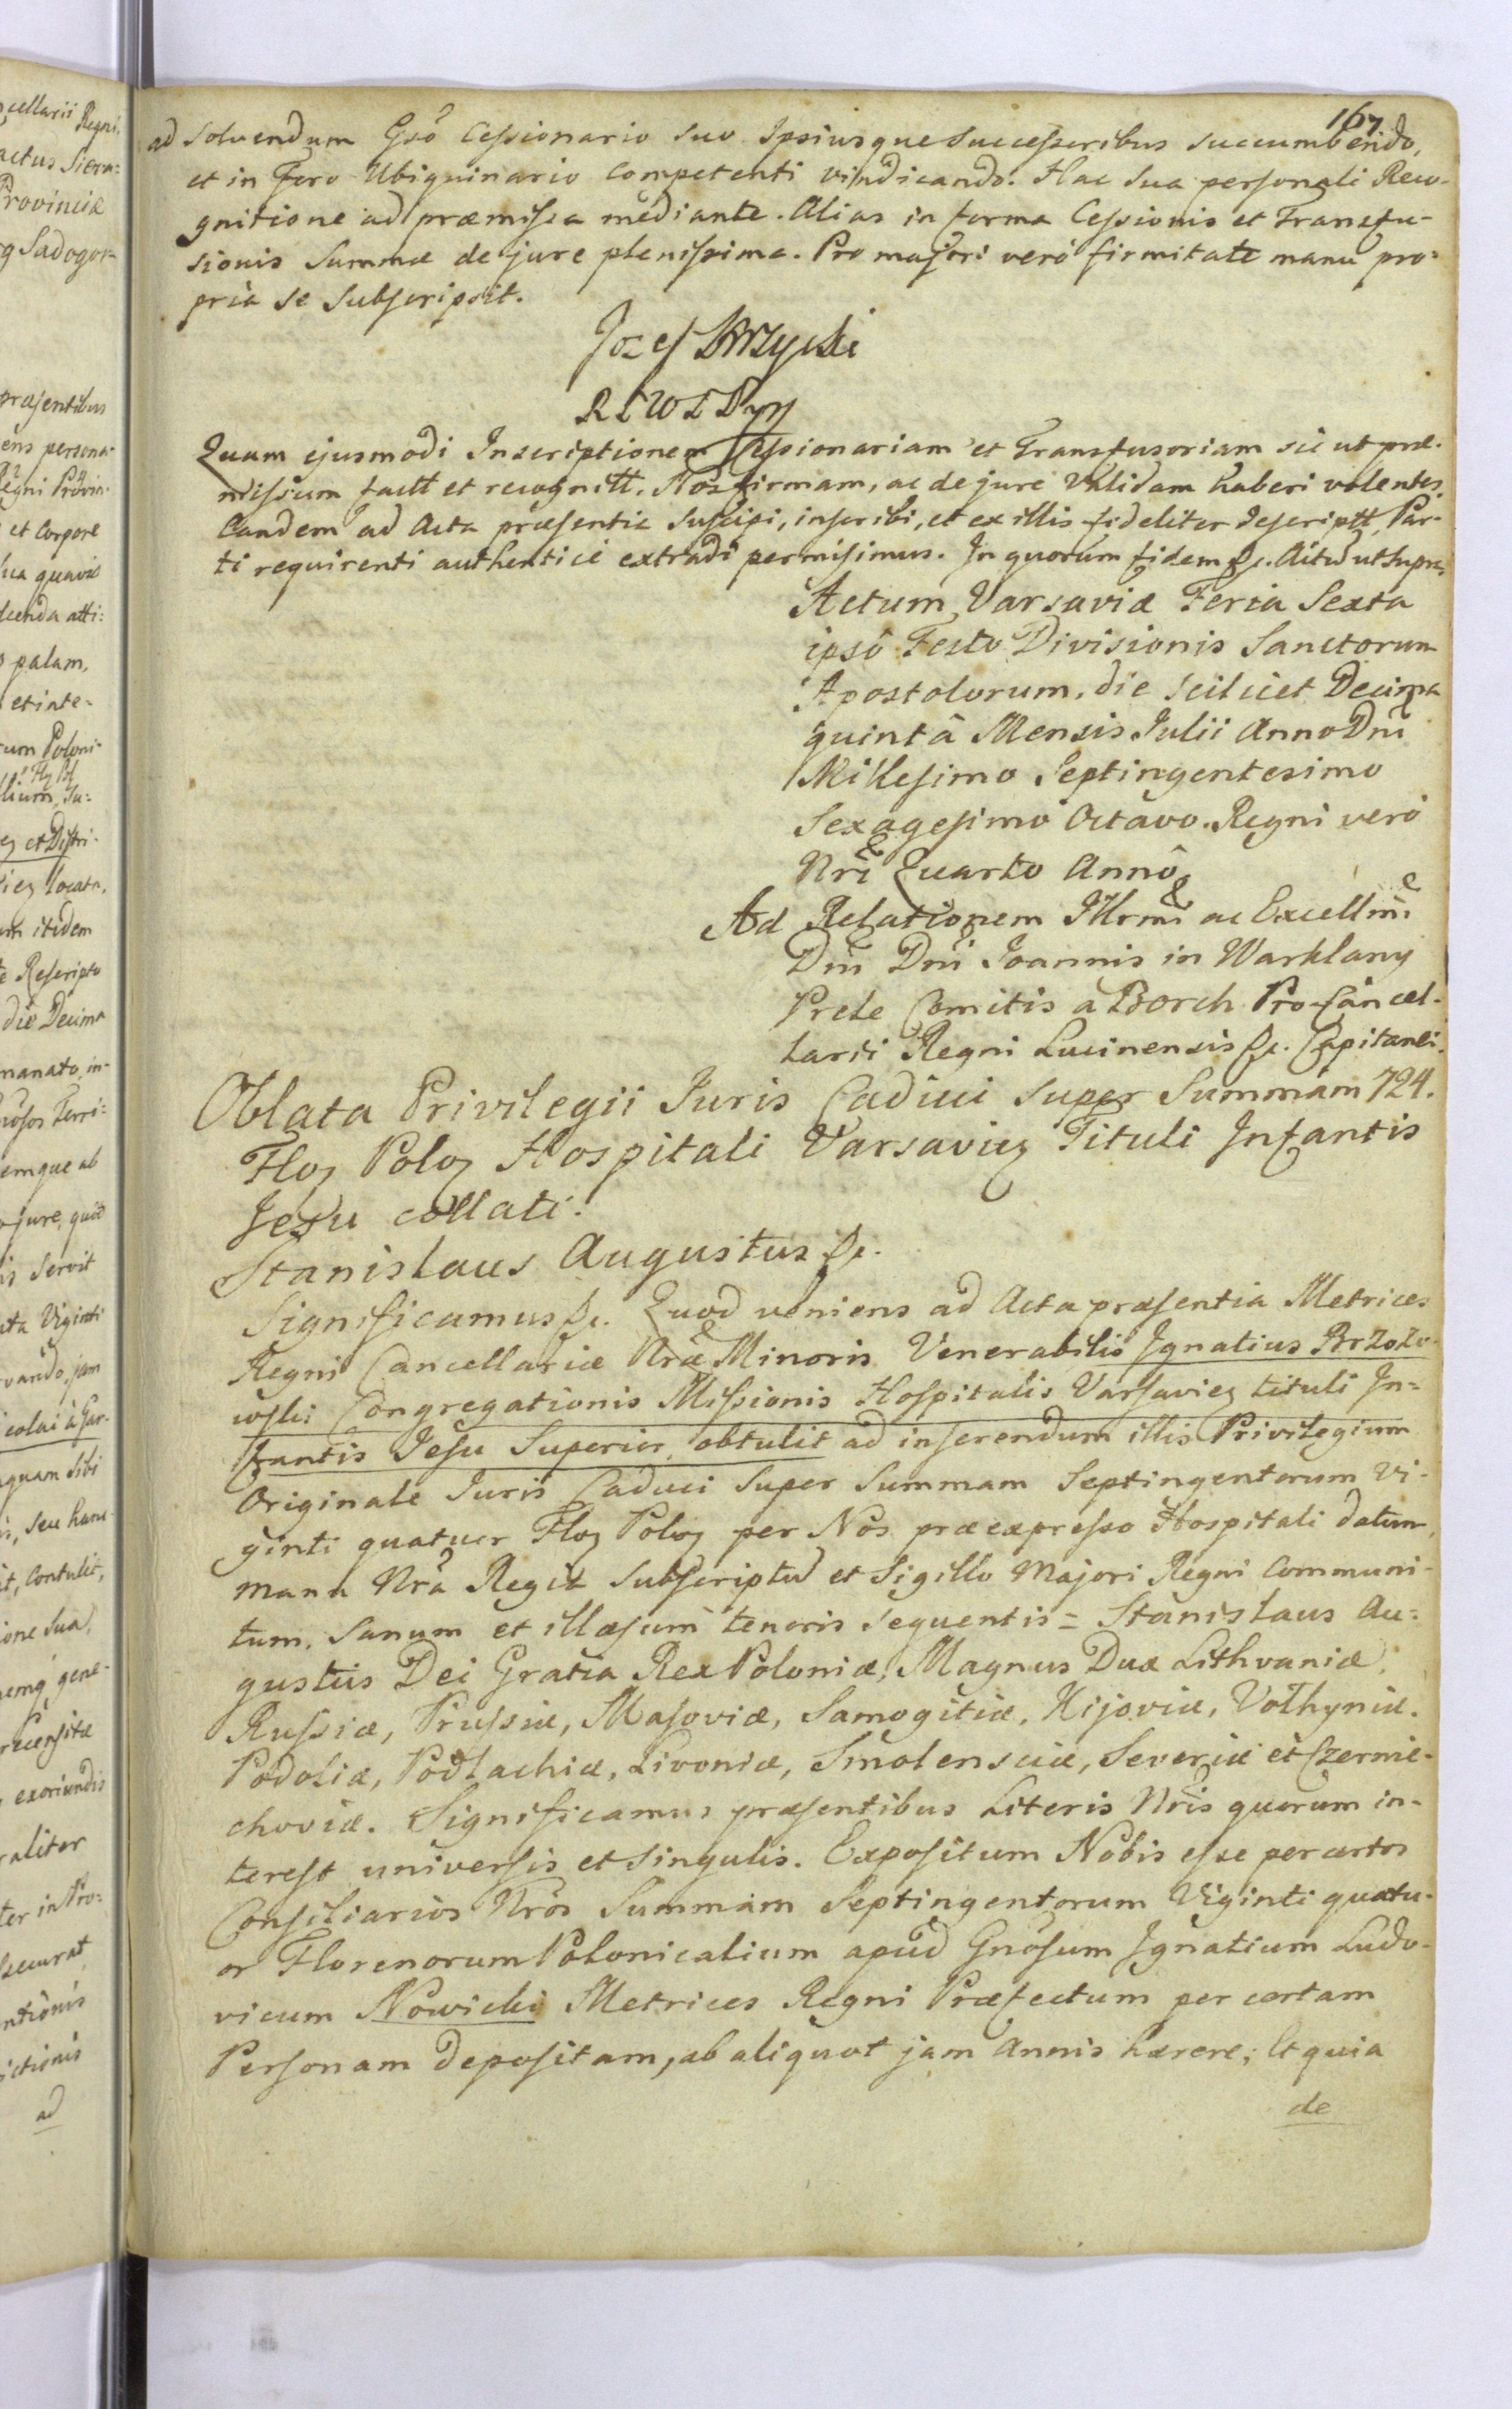 167
ad solvendum Gsó Cessionario suo Ipsiusque Successoribus succumbendo,
et in Foro Ubiquinario Competenti vindicando. Hac sua personali Reco-
gnitione ad præmissa mediante. Alias in forma Cessionis et Transfu-
sionis Summæ de jure plenissima. Pro majori veró firmitate manu pro-
pria se subscripsit.
Jozef
Quam ejusmodi Inscriptionem Cessionariam et Transfusoriam sic ut præ-
missum factt et recognitt. Nos firmam, ac de jure Validam haberi volentes,
Eandem ad Acta præsentia suscipi, inscribi, et ex illis fideliter descriptt, Par-
ti requirenti authenticè extradi permisimus. In quorum fidem &c. Actũ ut supra
Actum Varsaviæ Feria Sexta
ipsô Festo Divisionis Sanctorum
Apostolorum, die scilicet Decima
quintâ Mensis Julii Anno Dnĩ
Millesimo Septingentesimo
Sexagesimo Octavo. Regni veró
Nrĩ Quarto Annô
Ad Relationem Illrmĩ ac Excellmĩ
Dnĩ Dnĩ Joannis in Warklany
Prele Comitis a Borch Pro-Cancel-
larii Regni Lucinensis &c. Capitanei.
Oblata Privilegii Juris Caduci super Summam 724.
Floɀ Poloɀ Hospitali Varsavieɀ Tituli Infantis
Jesu collati.
Stanislaus Augustus &c.
Significamus &c. Quod veniens ad Acta præsentia Metrices
Regni Cancellariæ Nræ Minoris Venerabilis Ignatius Brzozo-
wski Congregationis Missionis Hospitalis Varsavieɀ tituli In-
fantis Jesu Superior, obtulit ad inserendum illis Privilegium
Originale Juris Caduci super Summam Septingentorum Vi-
ginti quatuor Floɀ Poloɀ per Nos præexpresso Hospitali datum,
manu Nrâ Regia subscriptũ et Sigillo Majori Regni Communi-
tum, sanum et illæsum tenoris sequentis = Stanislaus Au-
gustus Dei Gratia Rex Poloniæ, Magnus Dux Lithvaniæ,
Russiæ, Prussiæ, Masoviæ, Samogitiæ, Kijoviæ, Volhyniæ,
Podoliæ, Podlachiæ, Livoniæ, Smolensciæ, Severiæ et Czernie-
choviæ. Significamus præsentibus Literis Nrĩs quorum in-
terest universis et singulis. Expositum Nobis esse per certos
Consiliarios Nros Summam Septingentorum Viginti quatu-
or Florenorum Polonicalium apud Gnosum Ignatium Ludo-
vicum Nowicki Metrices Regni Præfectum per certam
Personam depositam, ab aliquot jam Annis hærere; Et quia
de